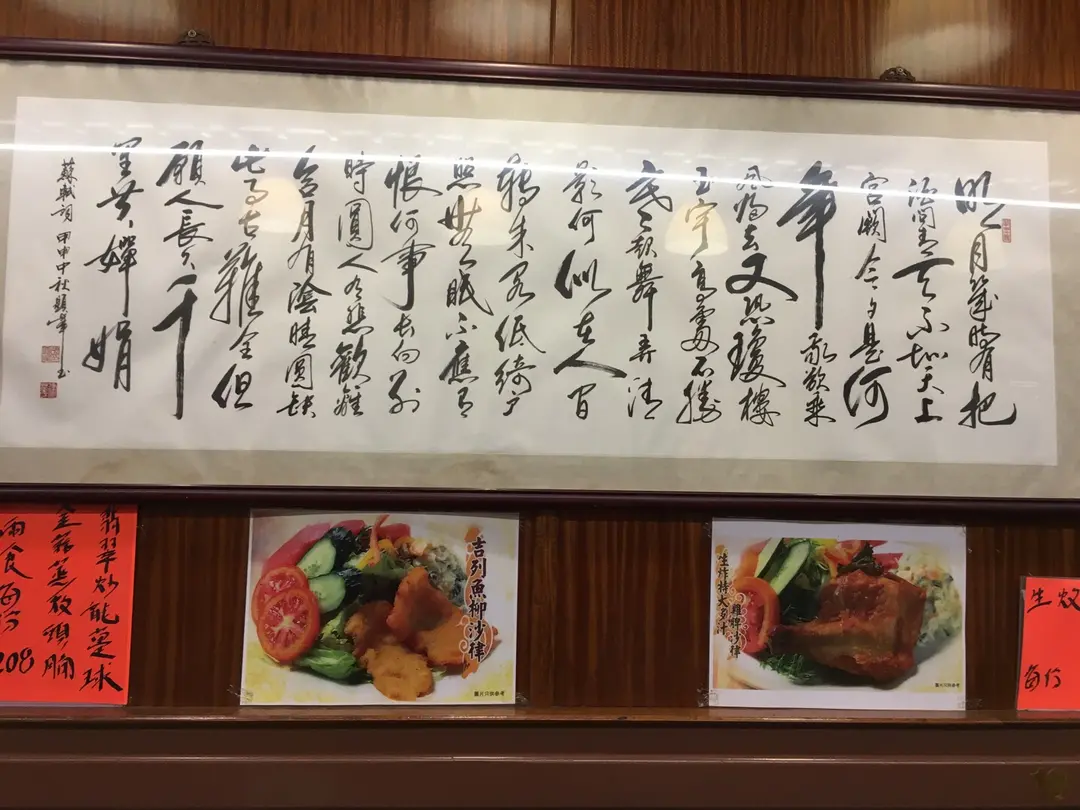 明月幾時有把
酒問青天不知天上
宮闕今夕是何
年我欲乘
風歸去又恐瓊樓
玉宇高處不勝
寒起舞弄清
影何似在人間
轉朱閣低綺戶
照無眠不應有
恨何事長向別
時圓人有悲歡離
合月有陰晴圓缺
此事古難全但
願人長久千
里共嬋娟
蘇軾詞 甲申中秋
翡翠炒龍躉球
金菇蒸頭腩
兩食每份
208
吉列魚柳沙律
圖片只供參考
生炸特大多汁
雞髀沙律
圖片只供參考
生炆
每份